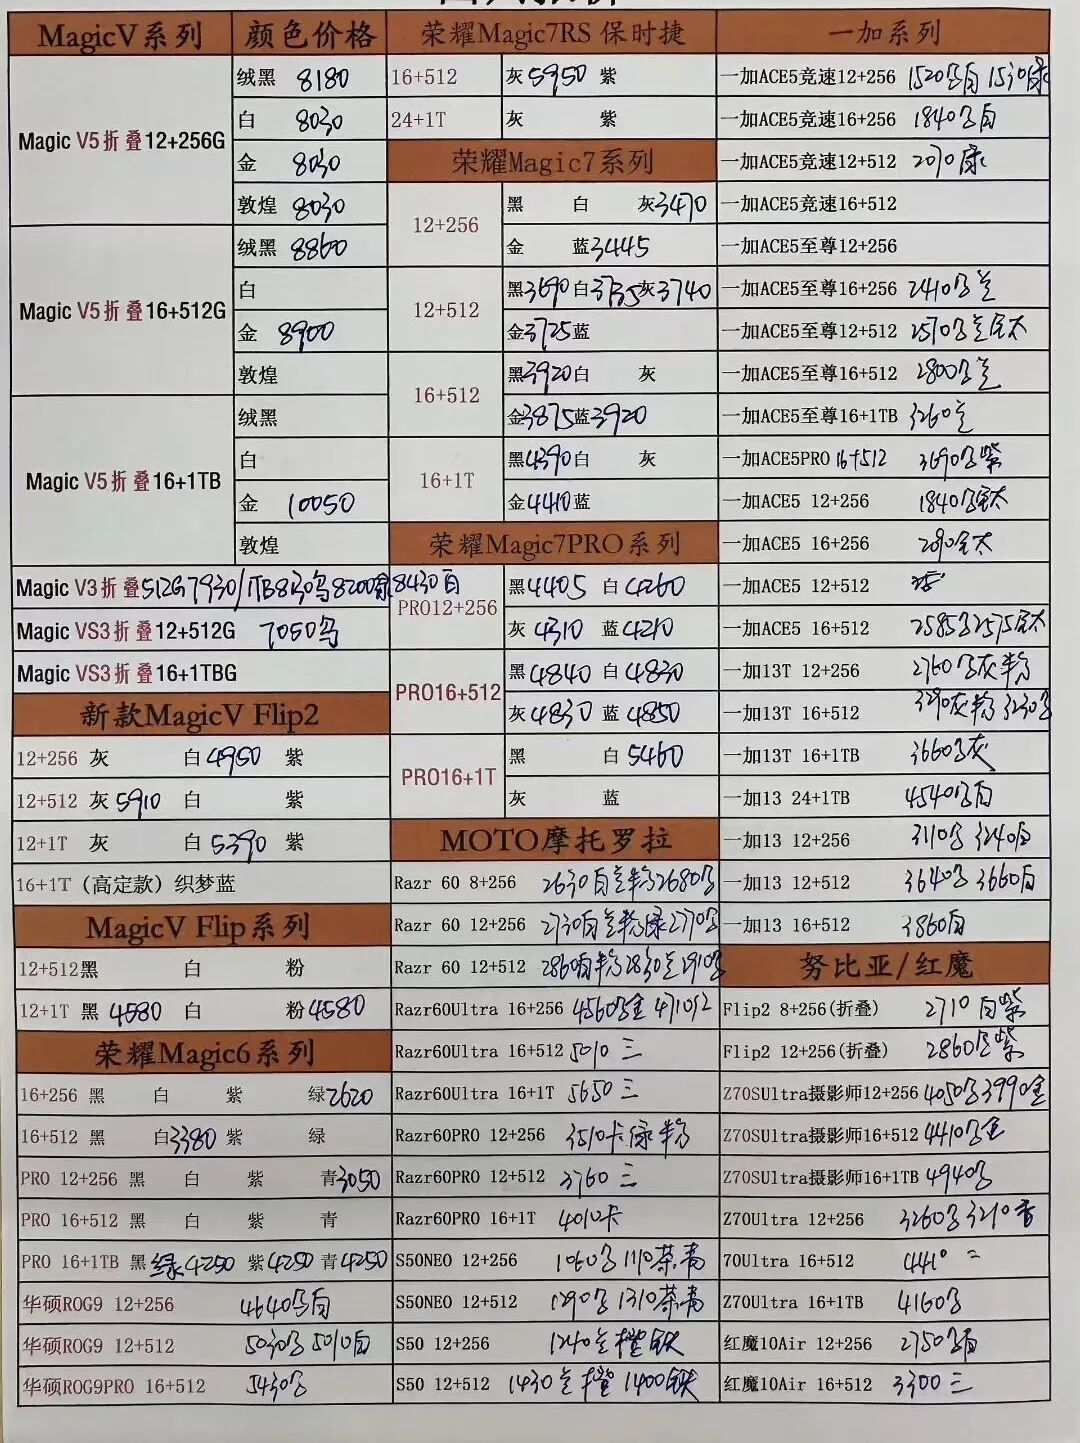 MagicV系列 颜色价格
Magic V5折叠12+256G
绒黑 8180
白 8030
金 8030
敦煌 8030
Magic V5折叠16+512G
绒黑 8860
白
金 8900
敦煌
Magic V5折叠16+1TB
绒黑
白
金 10050
敦煌
Magic V3折叠512G7930/1TB8130乌8200 8430白
Magic VS3折叠12+512G 7050乌
Magic VS3折叠16+1TBG
新款MagicV Flip2
12+256 灰 白4950 紫
12+512 灰5910 白 紫
12+1T 灰 白5390 紫
16+1T（高定款）织梦蓝
MagicV Flip系列
12+512黑 白 粉
12+1T 黑4580 白 粉4580
荣耀Magic6系列
16+256 黑 白 紫 绿2620
16+512 黑 白3380 紫 绿
PRO 12+256 黑 白 紫 青3050
PRO 16+512 黑 白 紫 青
PRO 16+1TB 黑绿4250 紫4250 青4250
华硕ROG9 12+256 4640白
华硕ROG9 12+512 5030 5010白
华硕ROG9PRO 16+512 5430
荣耀Magic7RS 保时捷
16+512 灰5950 紫
24+1T 灰 紫
荣耀Magic7系列
12+256
黑 白 灰3470
金 蓝3445
12+512
黑3690白3735灰3740
金3725蓝
16+512
黑3920白 灰
金3875蓝3920
16+1T
黑4390白 灰
金4410蓝
荣耀Magic7PRO系列
PRO12+256
黑4405 白4260
灰4310 蓝4210
PRO16+512
黑4840 白4830
灰4830 蓝4850
PRO16+1T
黑 白5460
灰 蓝
MOTO摩托罗拉
Razr 60 8+256 2630白兰粉2680
Razr 60 12+256 2730白兰粉绿2770
Razr 60 12+512 2860 粉2830兰2910
Razr60Ultra 16+256 4560 金 4710
Razr60Ultra 16+512 5010 三
Razr60Ultra 16+1T 5650 三
Razr60PRO 12+256 3510卡绿粉
Razr60PRO 12+512 3760 三
Razr60PRO 16+1T 4010卡
S50NEO 12+256 1060 1110茶青
S50NEO 12+512 1290 1310茶青
S50 12+256 1240兰橙铁
S50 12+512 1430兰橙 1400铁
一加系列
一加ACE5竞速12+256 1520 白 1530绿
一加ACE5竞速16+256 1840 白
一加ACE5竞速12+512 2070绿
一加ACE5竞速16+512
一加ACE5至尊12+256
一加ACE5至尊16+256 2410 兰
一加ACE5至尊12+512 2570 兰 太
一加ACE5至尊16+512 2800 兰
一加ACE5至尊16+1TB 3260兰
一加ACE5PRO 16+512 3690 紫
一加ACE5 12+256 1840 太
一加ACE5 16+256 2090 太
一加ACE5 12+512
一加ACE5 16+512 2585 2575 太
一加13T 12+256 2760 灰粉
一加13T 16+512 3290灰粉 3230
一加13T 16+1TB 3660 灰
一加13 24+1TB 4540 白
一加13 12+256 3110 3240白
一加13 12+512 3640 3660白
一加13 16+512 3860白
努比亚/红魔
Flip2 8+256(折叠) 2710 白紫
Flip2 12+256(折叠) 2860 紫
Z70SUltra摄影师12+256 4050 3990金
Z70SUltra摄影师16+512 4410 金
Z70SUltra摄影师16+1TB 4940
Z70Ultra 12+256 3260 3210
70Ultra 16+512 4410 二
Z70Ultra 16+1TB 4160
红魔10Air 12+256 2750 白
红魔10Air 16+512 3300 三